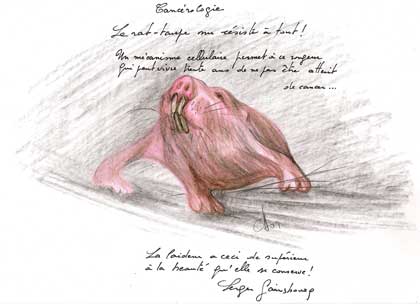 Cancérologie
Le rat-taupe nu résiste à tout !
Un mécanisme cellulaire permet à ce rongeur
qui peut vivre trente ans de ne pas être atteint
de cancer...
La laideur a ceci de supérieur
à la beauté qu'elle se conserve !
Serge Gainsbourg